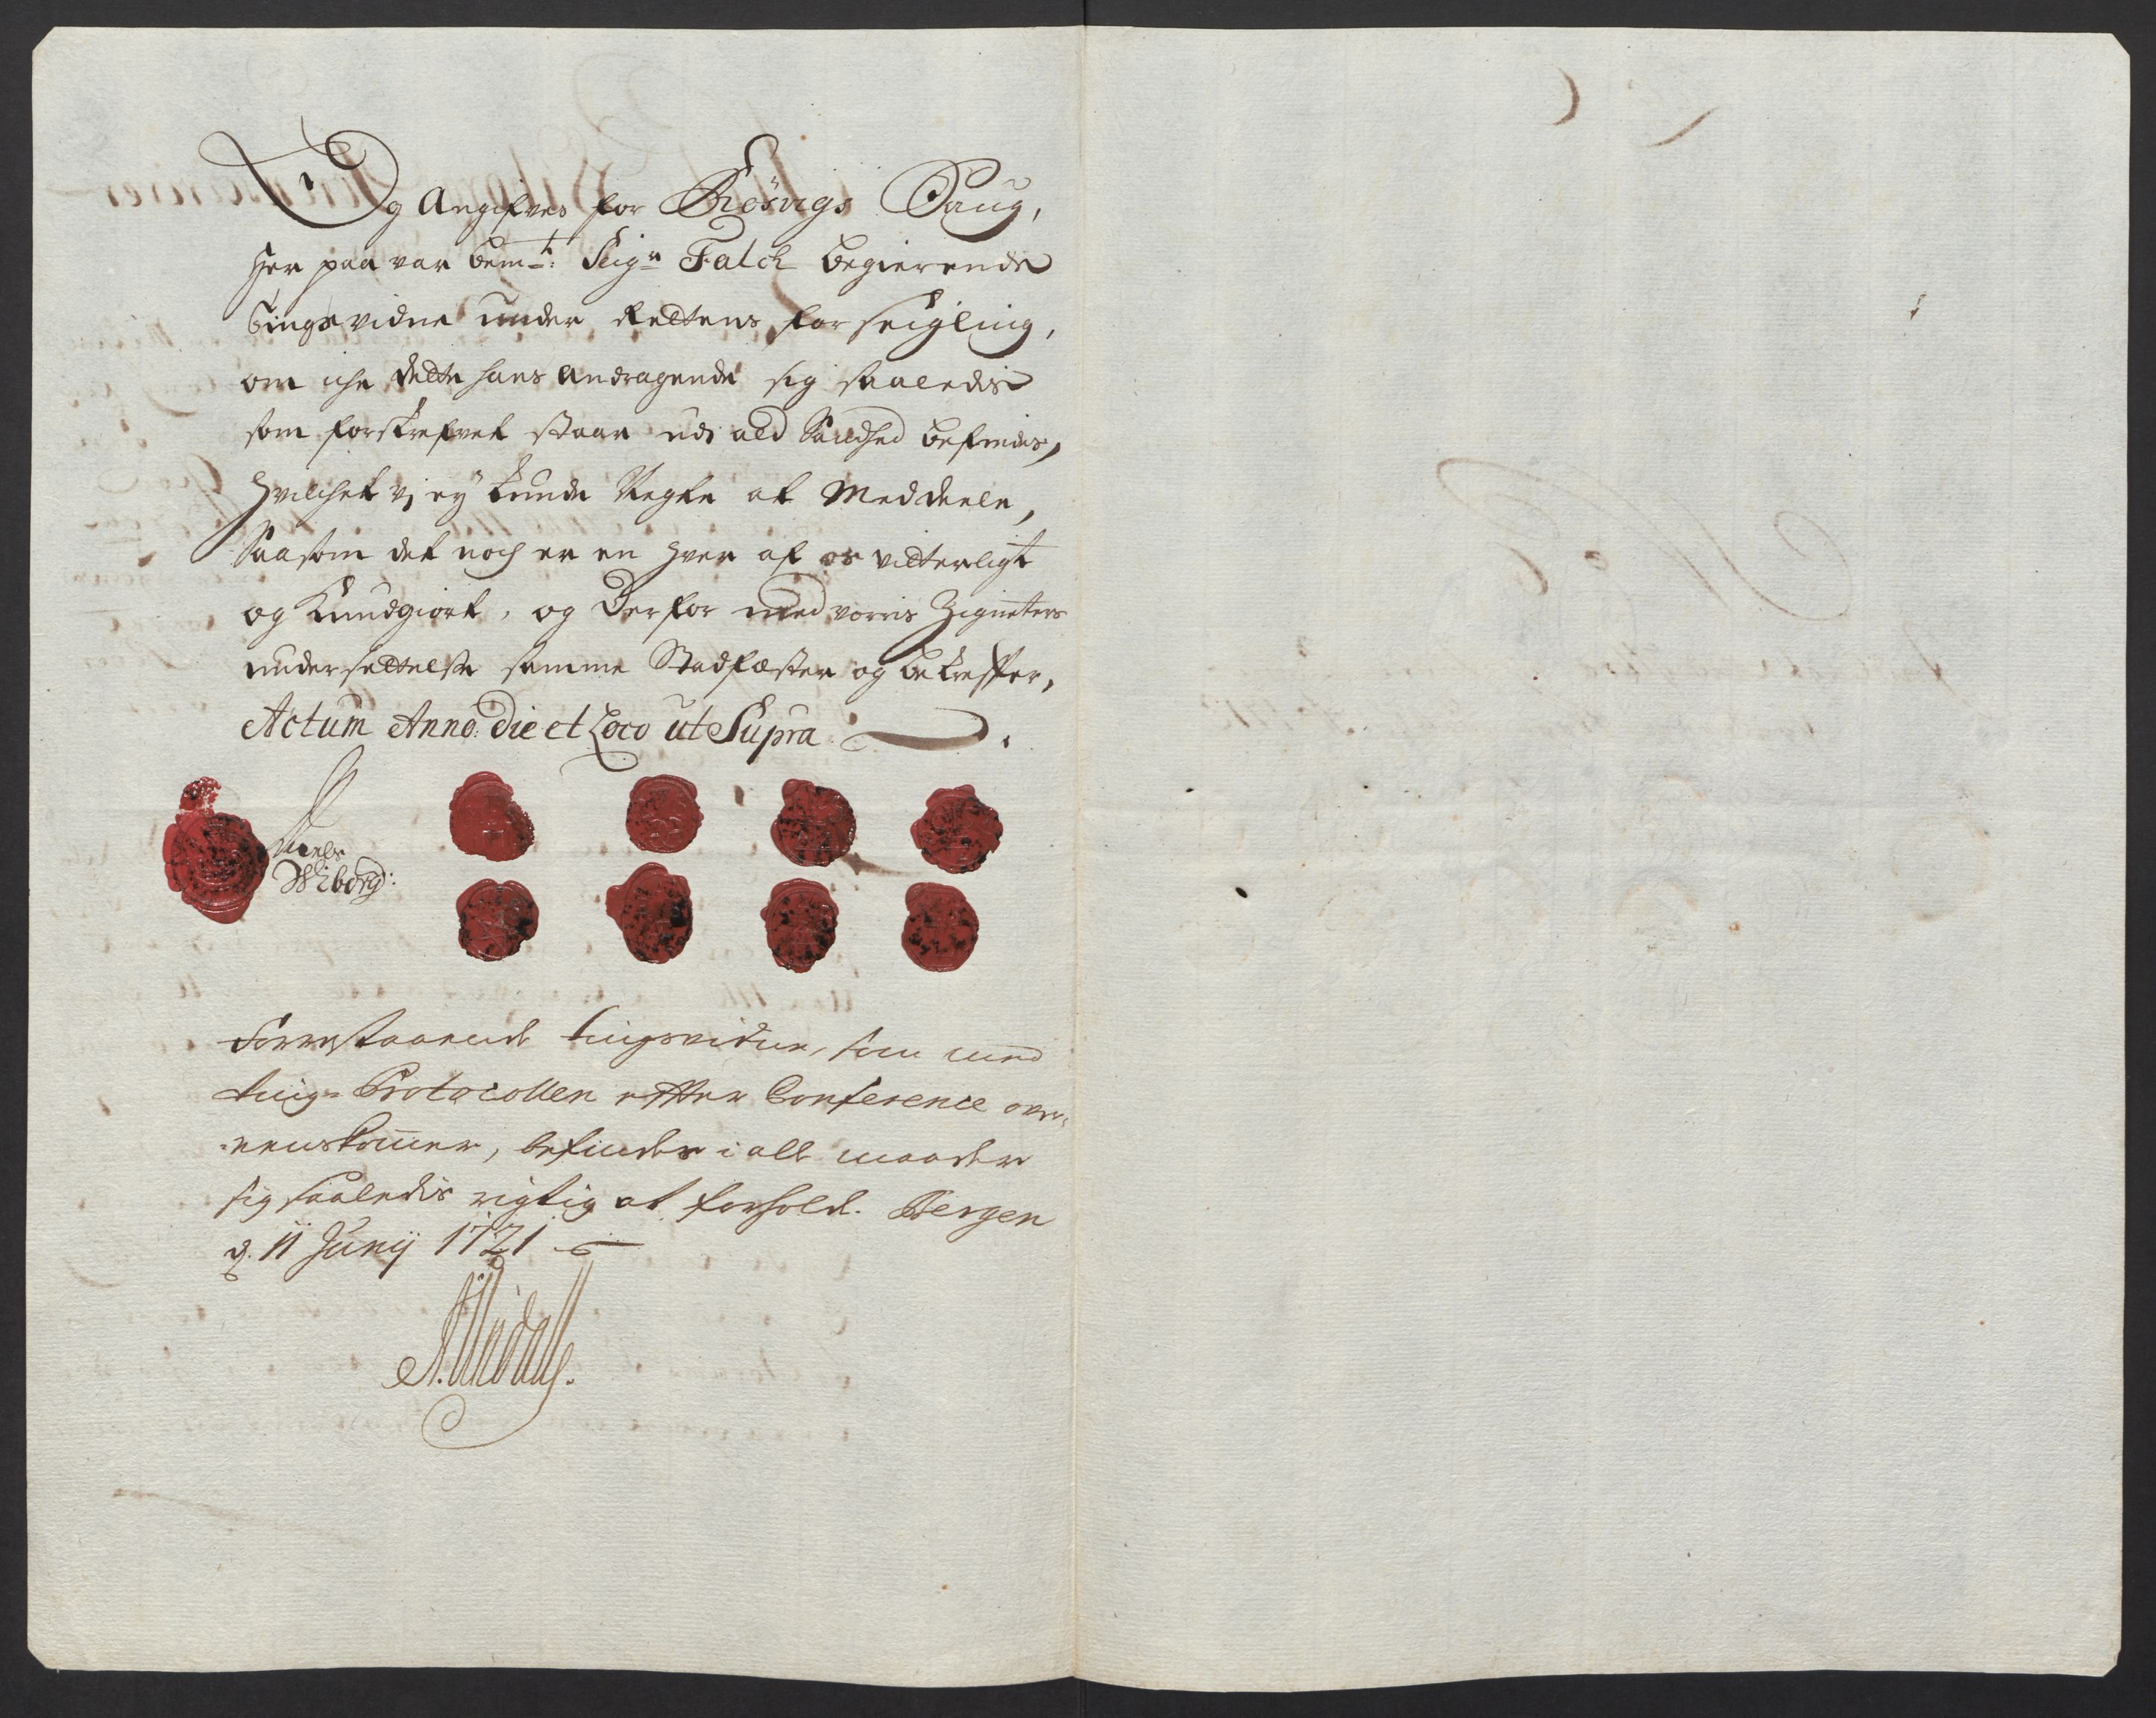 Og Angifves for Røsvigs Saug,
Her paa var bem:te Seigr Falch begierende
tingsvidne under Rettens forseigling,
om iche dette hans andragende sig saaledis
som forskrefvet staar udi ald Sandhed befindes,
hvilchet vj ej kunde Negte at Meddeele,
Saasom det noch er en hver af os vitterligt
og Kundgiort, og derfor med vorris Zigneters
undersettelse samme Stadfæster og bekreffter,
Actum Anno die et Loco ut Supra
Niels
Wiborg:
Forrestaaende tingsvidne, som med
ting-Protocollen effter Conference over,,
,,eenskommer, befindes i alle maader
sig saaledis rigtig at forhold. Bergen
d. 11 Junij 1721